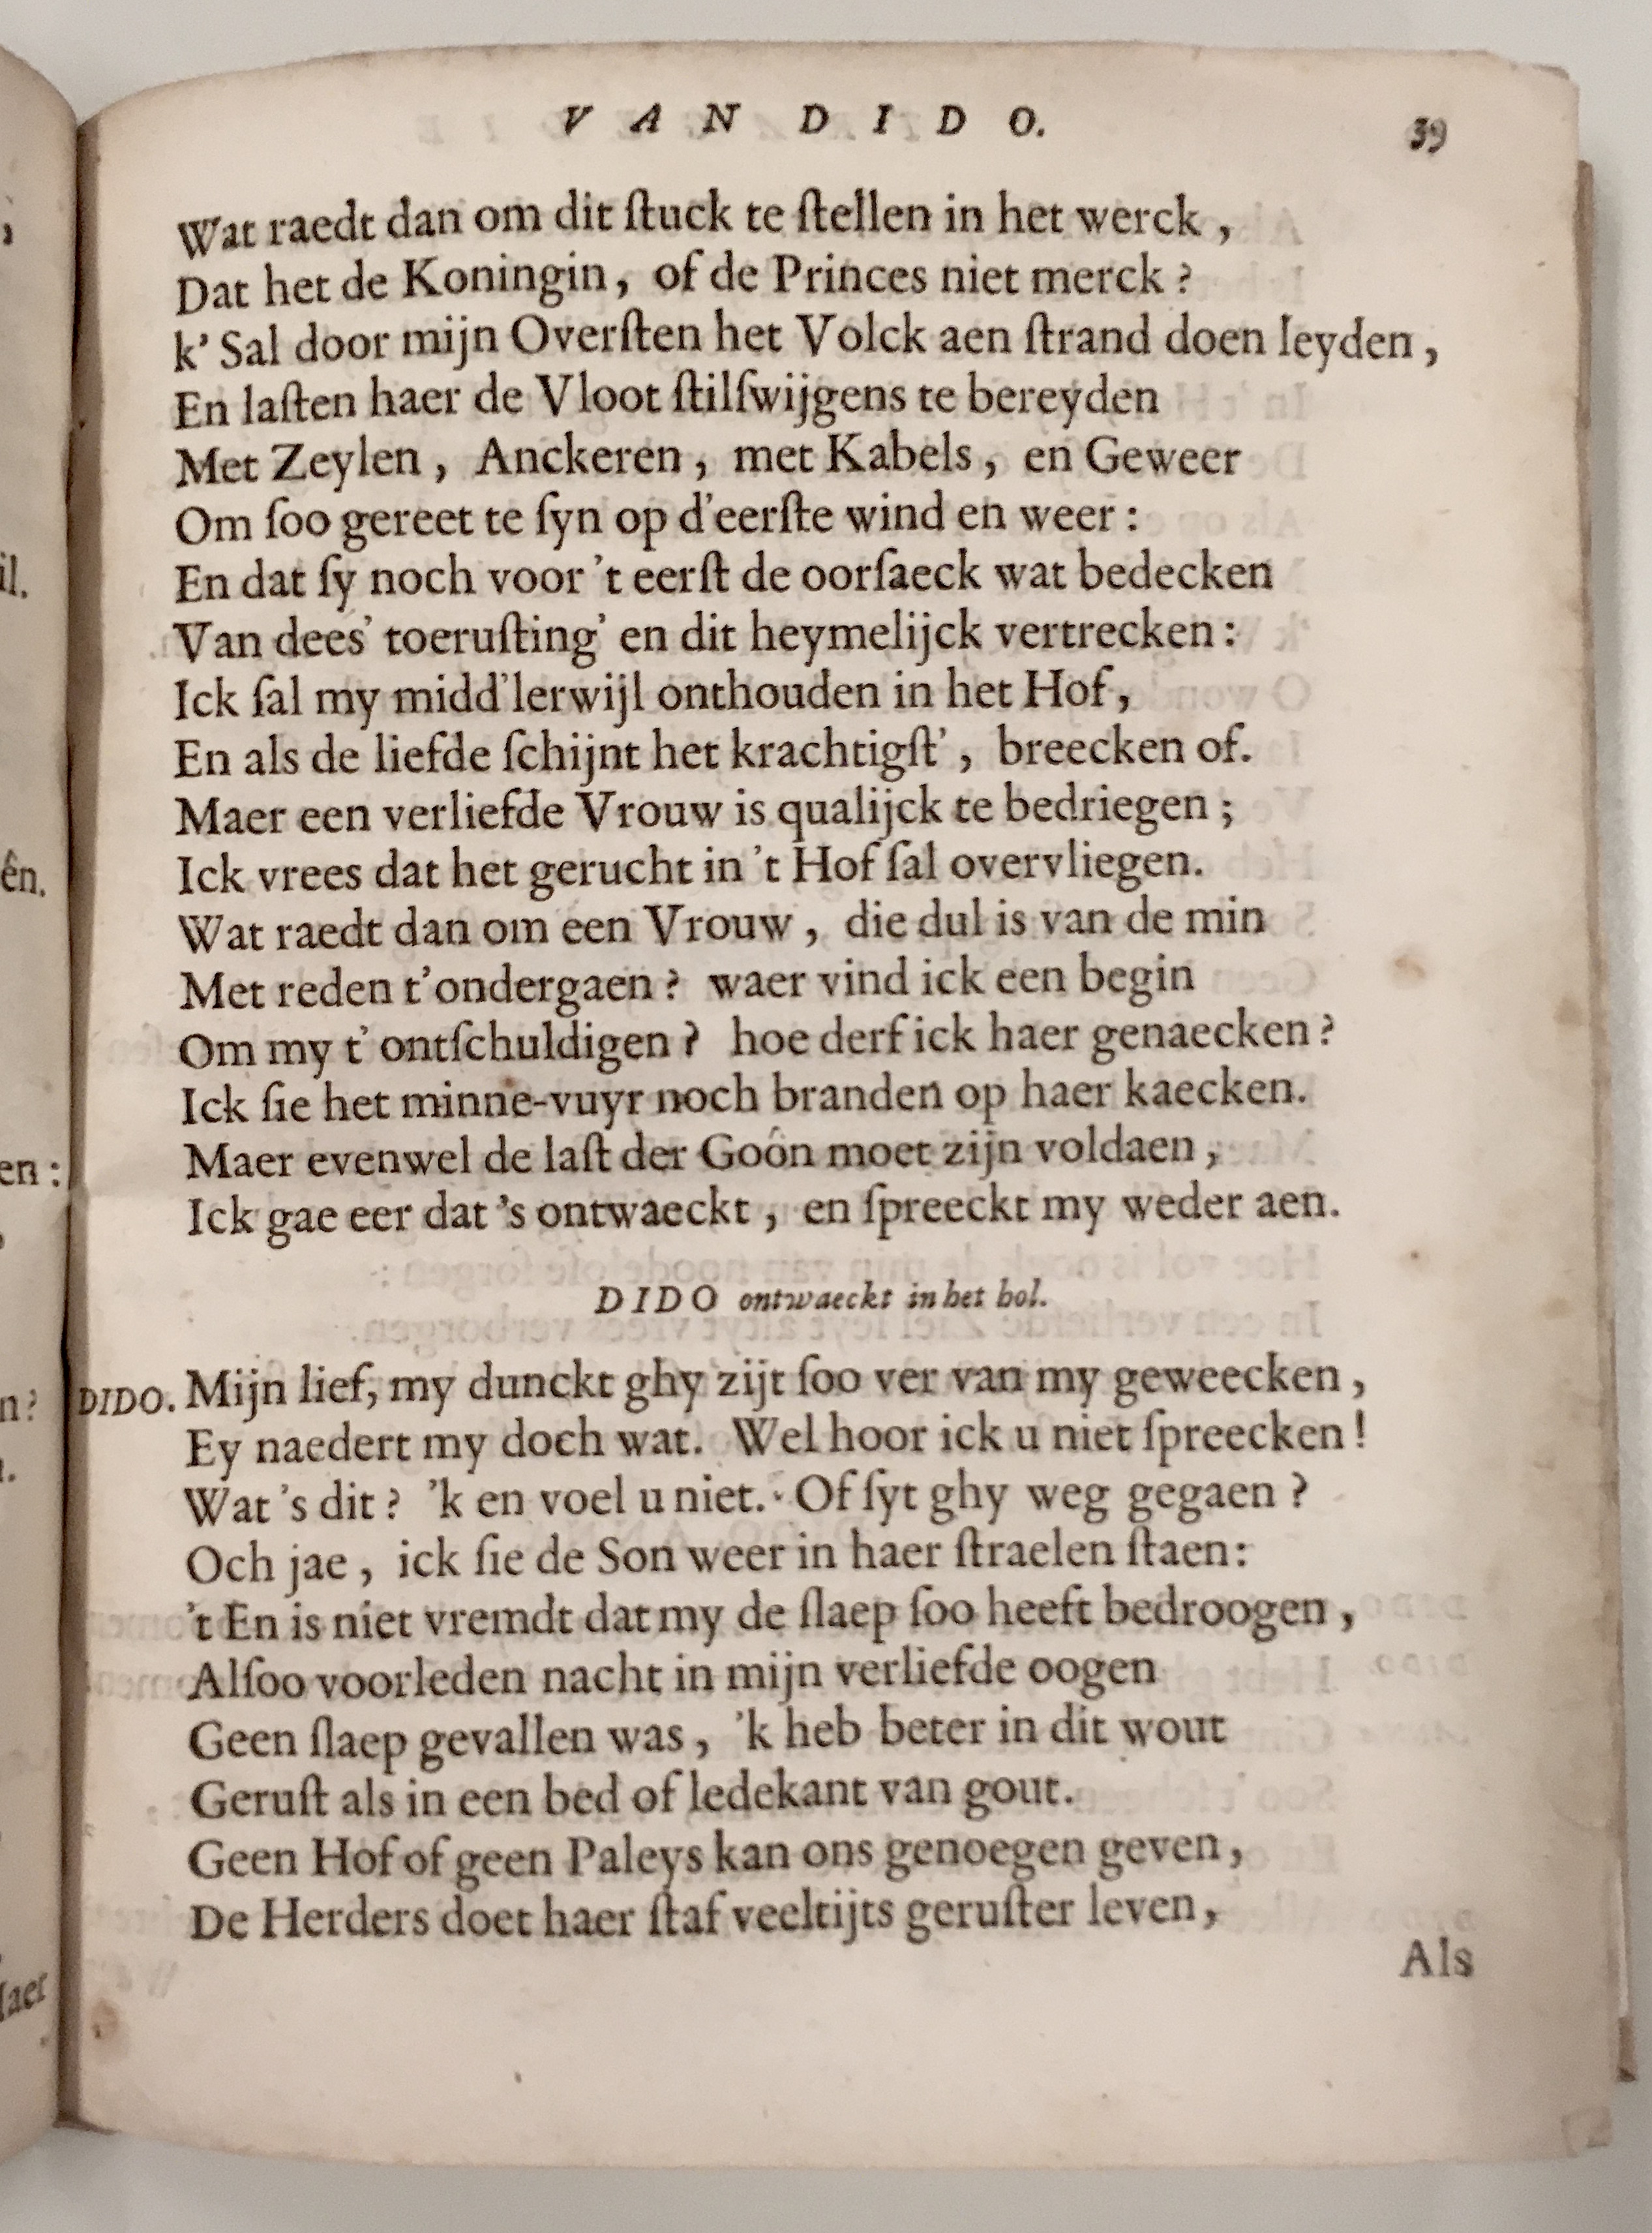 VAN DIDO. 39
Wat raedt dan om dit ſtuck te ſtellen in het werck ,
Dat het de Koningin, of de Princes niet merck ?
k' Sal door mijn Overſten het Volck aen ſtrand doen leyden ,
En laſten haer de Vloot ſtilſwijgens te bereyden
Met Zeylen , Anckeren , met Kabels , en Geweer
Om ſoo gereet te ſyn op d'eerſte wind en weer :
En dat ſy noch voor 't eerſt de oorſaeck wat bedecken
Van dees' toeruſting' en dit heymelijck vertrecken :
Ick ſal my midd'lerwijl onthouden in het Hof ,
En als de liefde ſchijnt het krachtigſt' , breecken of.
Maer een verliefde Vrouw is qualijck te bedriegen ;
Ick vrees dat het gerucht in 't Hof ſal overvliegen.
Wat raedt dan om een Vrouw , die dul is van de min
Met reden t'ondergaen ? waer vind ick een begin
Om my t' ontſchuldigen ? hoe derf ick haer genaecken ?
Ick ſie het minne-vuyr noch branden op haer kaecken.
Maer evenwel de laſt der Goôn moet zijn voldaen ,
Ick gae eer dat 's ontwaeckt , en ſpreeckt my weder aen.
DIDO ontwaeckt in het hol.
DIDO. Mijn lief, my dunckt ghy zijt ſoo ver van my geweecken ,
Ey naedert my doch wat. Wel hoor ick u niet ſpreecken !
Wat 's dit ? 'k en voel u niet. Of ſyt ghy weg gegaen ?
Och jae , ick ſie de Son weer in haer ſtraelen ſtaen :
't En is niet vremdt dat my de ſlaep ſoo heeft bedroogen ,
Alſoo voorleden nacht in mijn verliefde oogen
Geen ſlaep gevallen was , 'k heb beter in dit wout
Geruſt als in een bed of ledekant van gout.
Geen Hof of geen Paleys kan ons genoegen geven ,
De Herders doet haer ſtaf veeltijts geruſter leven ,
Als